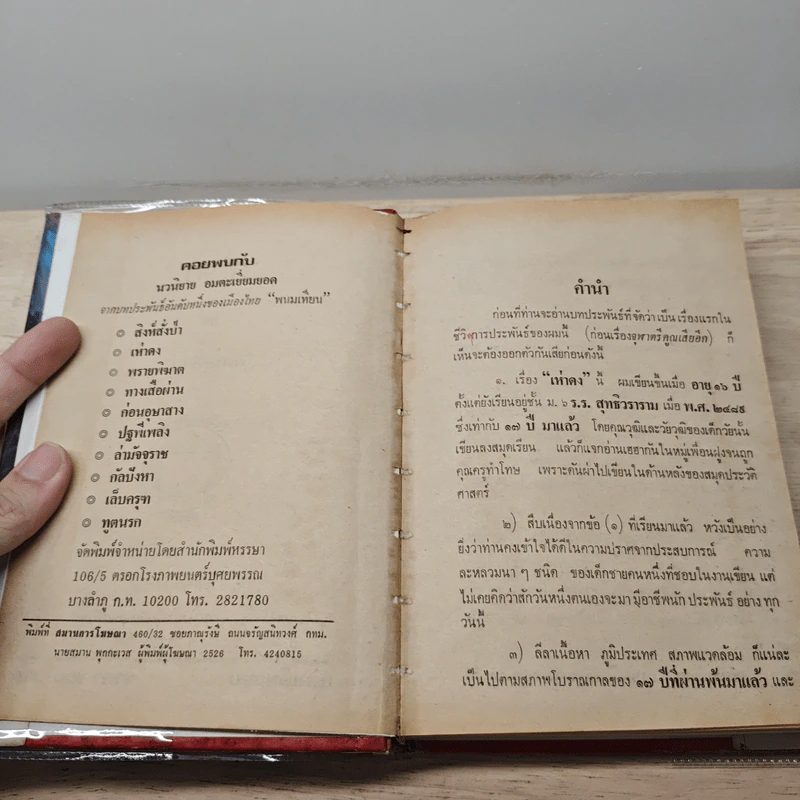 คอยพบกับ
นวนิยาย อมตะเยี่ยมยอด
จากบทประพันธ์อันดับหนึ่งของเมืองไทย "พนมเทียน"
๏ สิงห์สั่งป่า
๏ เห่าดง
๏ พรายพิฆาต
๏ ทางเสือผ่าน
๏ ก่อนอุษาสาง
๏ ปฐพีเพลิง
๏ ล่ามัจจุราช
๏ กัลปังหา
๏ เล็บครุฑ
๏ ทูตนรก
จัดพิมพ์จำหน่ายโดยสำนักพิมพ์หรรษา
106/5 ตรอกโรงภาพยนตร์บุศยพรรณ
บางลำภู ก.ท. 10200 โทร. 2821780
พิมพ์ที่ สมานการโฆษณา 460/32 ซอยภาณุรังษี ถนนจรัญสนิทวงศ์ กทม.
นายสมาน พุกกะเวส ผู้พิมพ์ผู้โฆษณา 2526 โทร. 4240815
คำนำ
ก่อนที่ท่านจะอ่านบทประพันธ์ที่จัดว่าเป็นเรื่องแรกใน
ชีวิตการประพันธ์ของผมนี้ (ก่อนเรื่องจุฬาตรีคูณเสียอีก) ก็
เห็นจะต้องออกตัวกันเสียก่อนดังนี้
๑. เรื่อง "เห่าดง" นี้ ผมเขียนขึ้นเมื่อ อายุ ๑๖ ปี
ตั้งแต่ยังเรียนอยู่ชั้น ม. ๖ ร.ร. สุทธิวราราม เมื่อ พ.ศ. ๒๔๘๙
ซึ่งเท่ากับ ๑๗ ปี มาแล้ว โดยคุณวุฒิและวัยวุฒิของเด็กวัยนั้น
เขียนลงสมุดเรียน แล้วก็แจกอ่านเฮฮากันในหมู่เพื่อนฝูงจนถูก
คุณครูทำโทษ เพราะดันผ่าไปเขียนในด้านหลังของสมุดประวัติ
ศาสตร์
๒) สืบเนื่องจากข้อ (๑) ที่เรียนมาแล้ว หวังเป็นอย่าง
ยิ่งว่าท่านคงเข้าใจได้ดีในความปราศจากประสบการณ์ ความ
ละหลวมนา ๆ ชนิด ของเด็กชายคนหนึ่งที่ชอบในงานเขียน แต่
ไม่เคยคิดว่าสักวันหนึ่งตนเองจะมามีอาชีพนักประพันธ์อย่างทุก
วันนี้
๓) ลีลาเนื้อหา ภูมิประเทศ สภาพแวดล้อม ก็แน่ละ
เป็นไปตามสภาพโบราณกาลของ ๑๗ ปีที่ผ่านพ้นมาแล้ว และ